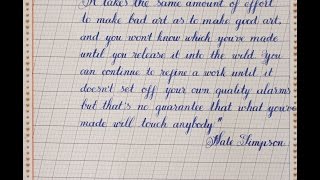 "It takes the same amount of effort
to make bad art as to make good art,
and you won't know which you've made
until you release it into the wild. You
can continue to refine a work until it
doesn't set off your own quality alarms
but that's no guarantee that what you've
made will touch anybody."
Nate Simpson